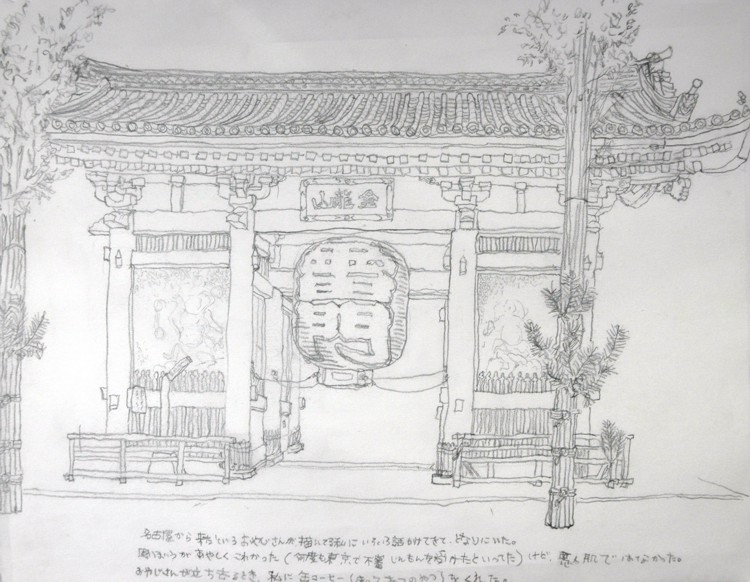 金龍山
雷門
名古屋から来ているおやじさんが描いてる私にいろいろ話かけてきて、となりにいた。
があやしくこわかった(何度も東京で不審じんもんを受けたといってた)けど、悪人肌ではなかった。
おやじさんが立ち去るとき、私に缶コーヒー(のやつ)をくれた。